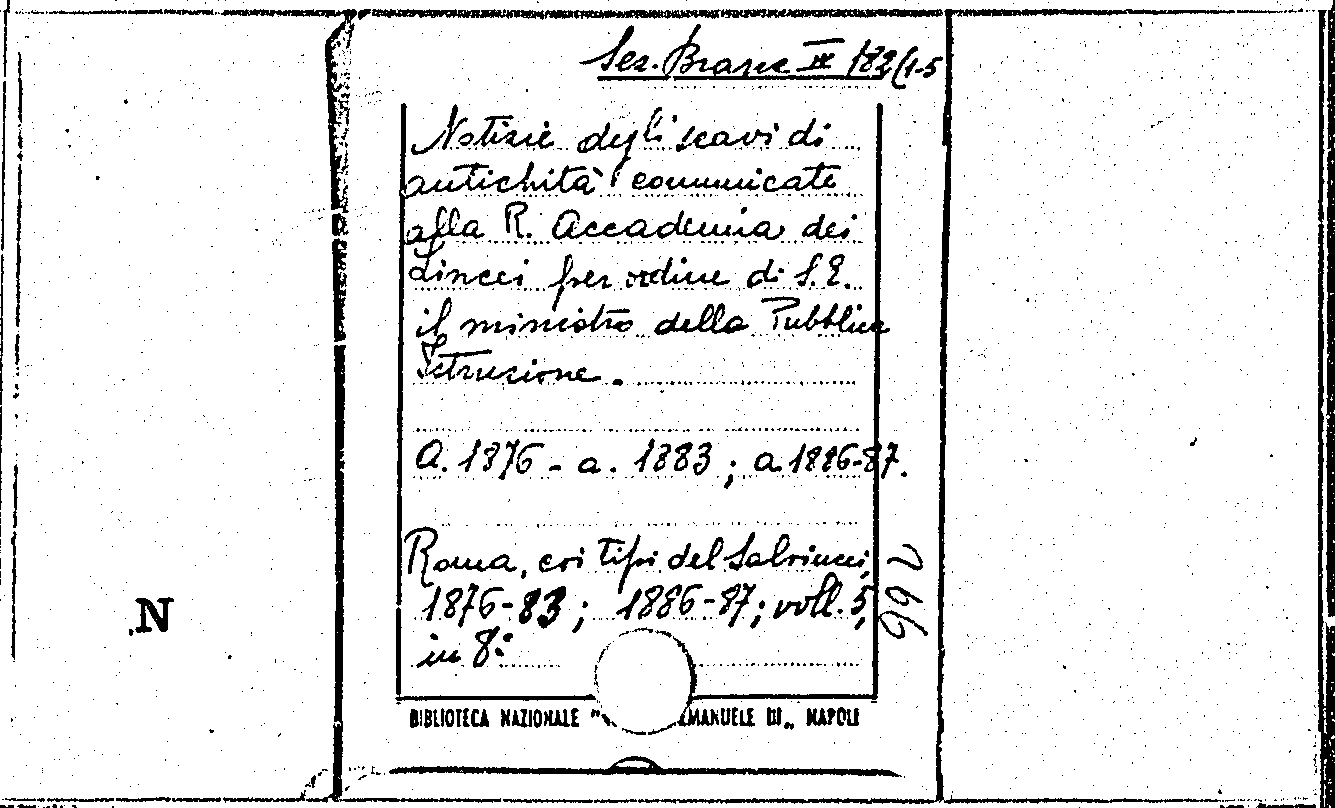 Sez. Branc. III 182(1-5
Notizie degli scavi di
antichità comunicate
alla R. Accademia dei
Lincei per ordine di S.E.
il ministro della Pubblica
Istruzione.
A. 1876 - a. 1883 ; a. 1886-87.
Roma, coi tipi del Salviucci,
1876-83 ; 1886-87 ; voll. 5,
in 8º
N
BIBLIOTECA NAZIONALE " EMANUELE III„ NAPOLI